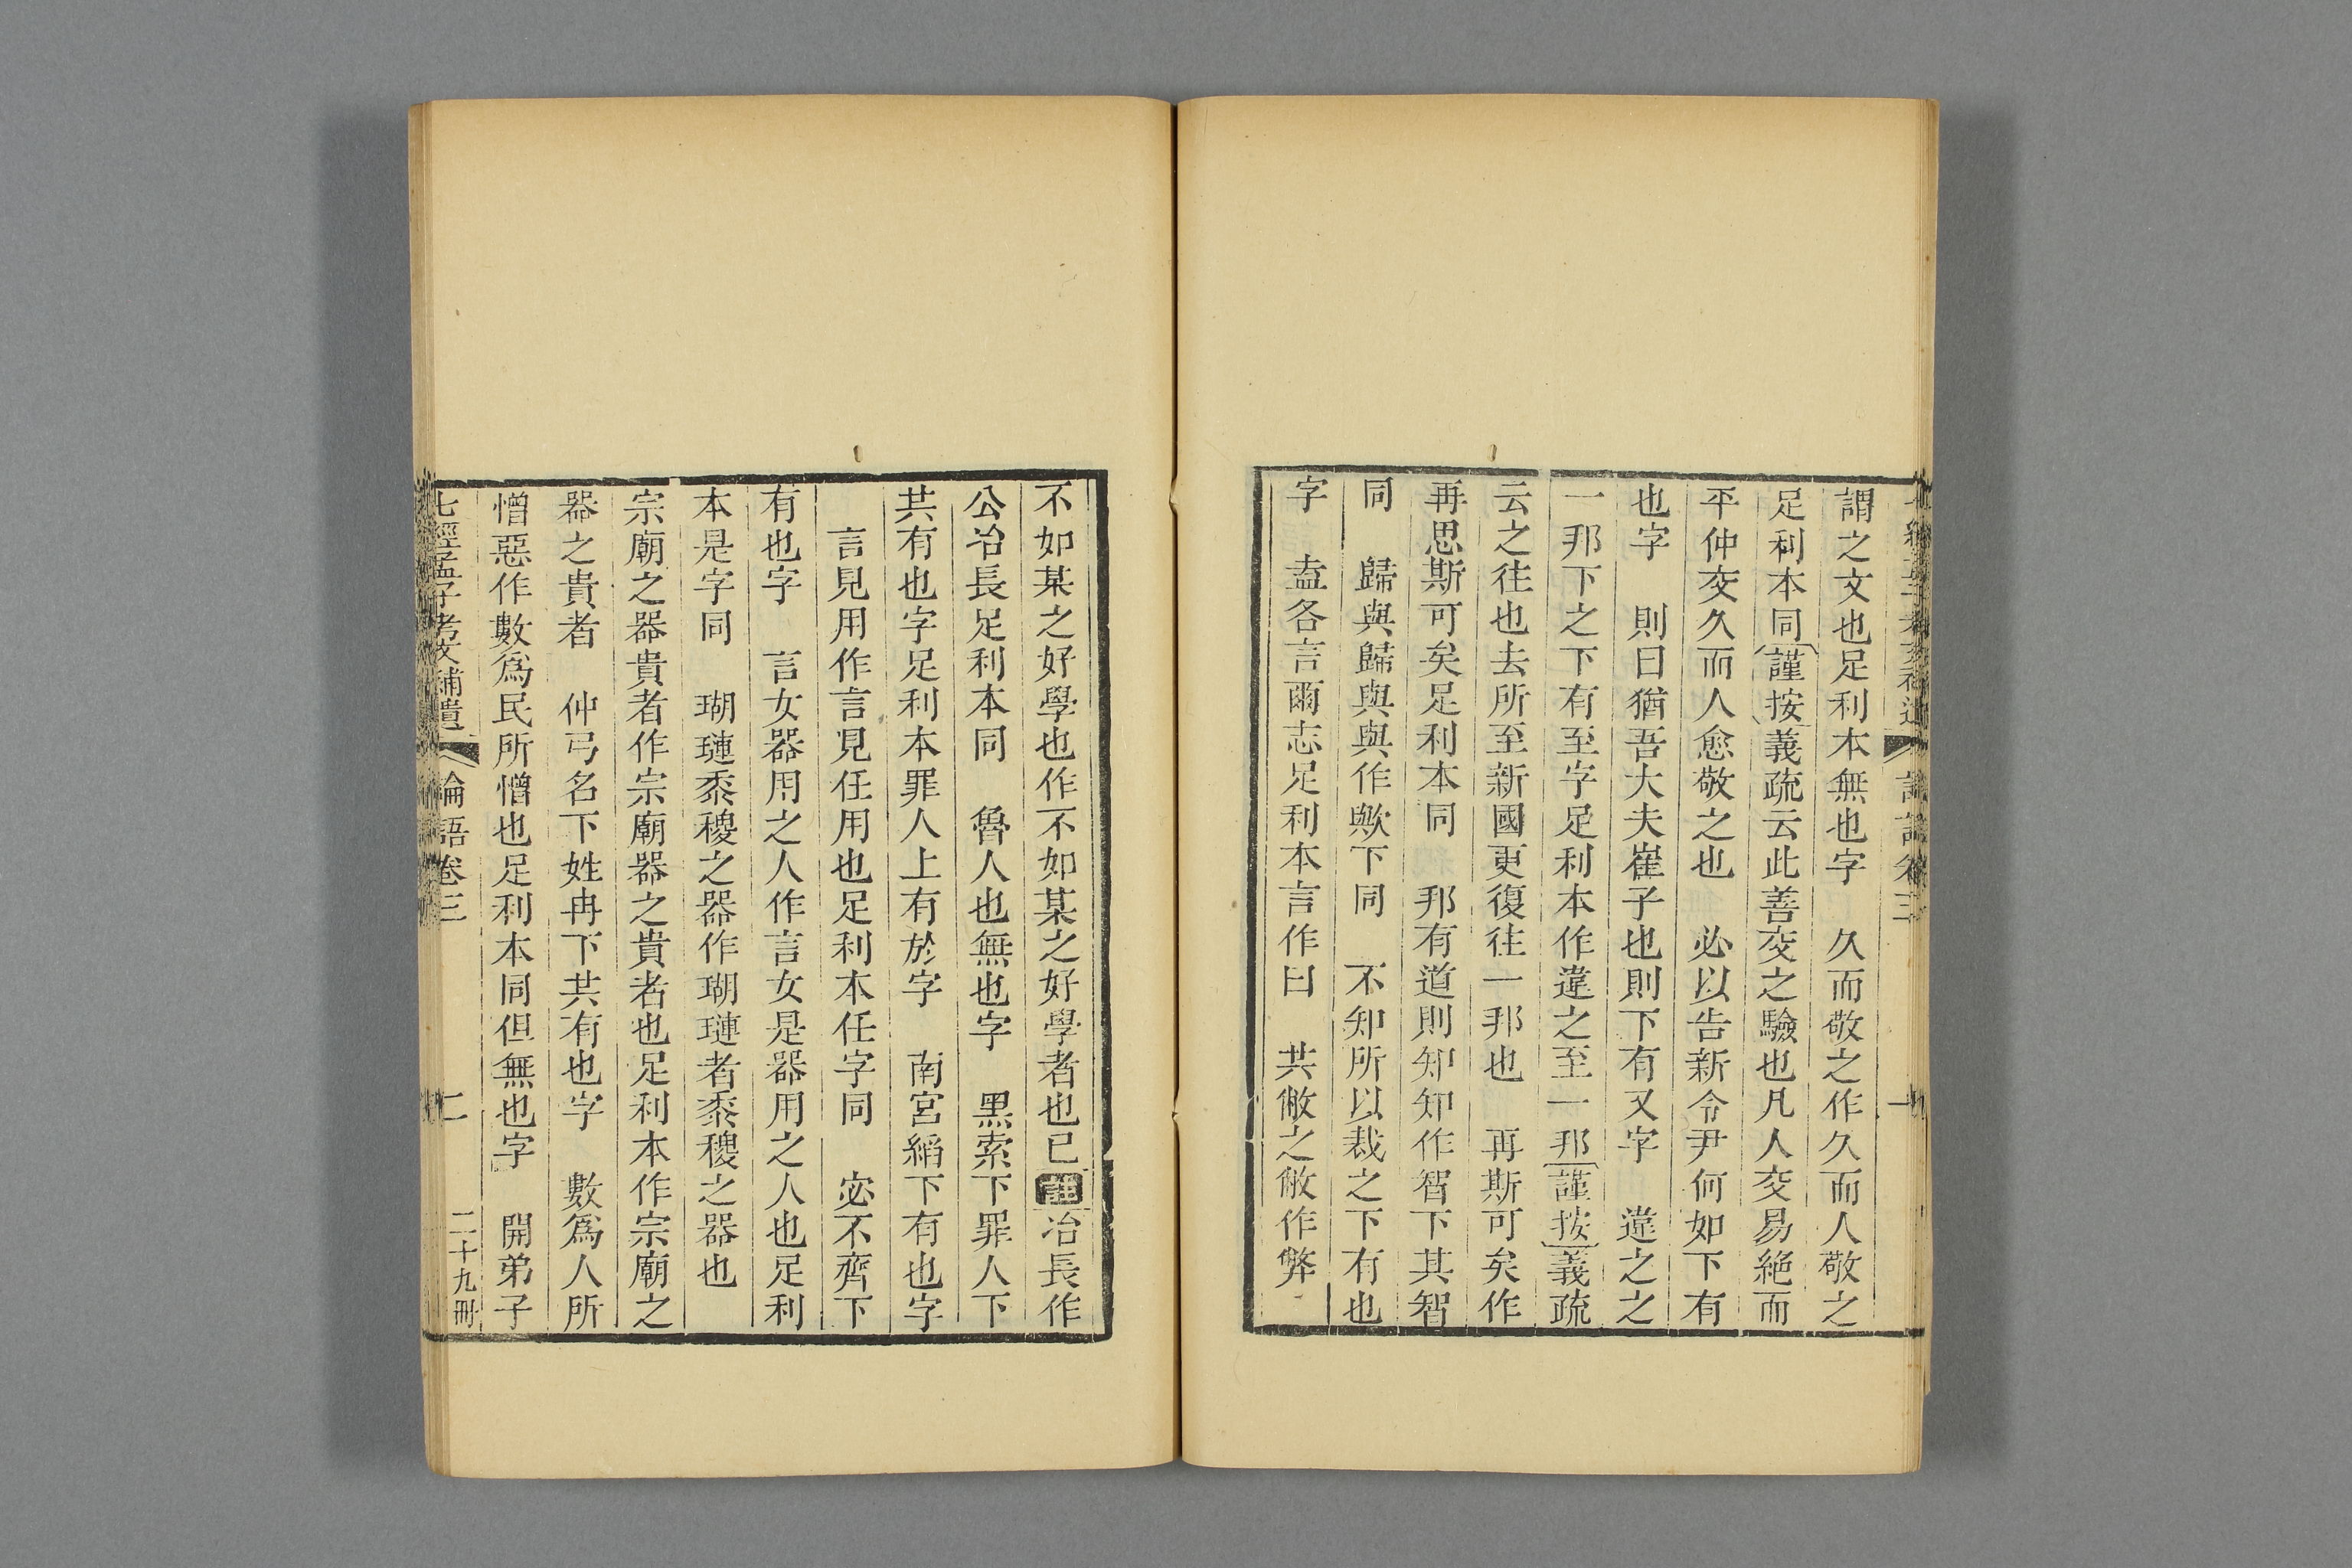 謂之文也足利本無也字　久而敬之作久而人敬之
足利本同謹按義疏云此善交之驗也凡人交易絶而
平仲交久而人愈敬之也　必以告新令尹何如下有
也字　則曰猶吾大夫崔子也則下有又字　違之之
一邦下之下有至字足利本作違之至一邦謹按義疏
云之往也去所至新國更復往一邦也　再斯可矣作
再思斯可矣足利本同　邦有道則知知作智下其智
同　歸與歸與與作歟下同　不知所以裁之下有也
字　盍各言爾志足利本言作曰　共敝之敝作弊
不如某之好學也作不如某之好學者也已註冶長作
公冶長足利本同　魯人也無也字　黑索下罪人下
共有也字足利本罪人上有於字　南宮縚下有也字
言見用作言見任用也足利本任字同　宓不齊下
有也字　言女器用之人作言女是器用之人也足利
本是字同　瑚璉黍稷之器作瑚璉者黍稷之器也
宗廟之器貴者作宗廟器之貴者也足利本作宗廟之
器之貴者　仲弓名下姓冉下共有也字　數爲人所
憎惡作數爲民所憎也足利本同但無也字　開弟子
七經孟子考文補遺　論語卷三　二　二十九冊